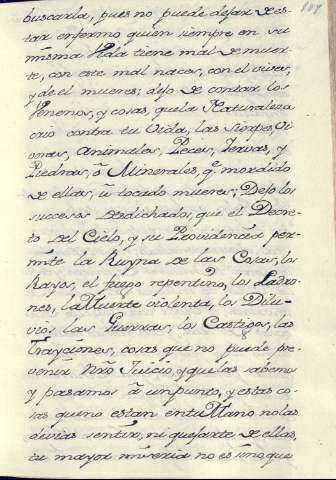 buscarla, pues no puede dejar de es-
tar enfermo quien siempre en su
misma Vida tiene mal de muer-
te, con este mal naces, con el vives,
y de el mueres; dejo de contar los
Venenos, y cosas, que la Naturaleza
crio contra tu Vida, las Sierpes, Vi-
voras, Animales, Peces, Yervas, y
Piedras, o Minerales, qe. mordido
de ellas, u tocado mueres; Dejo los
successos desdichados, que el Decre-
to del Cielo, y su Providencia per-
mite la Ruyna de las Cosas, los
Rayos, el fuego repentino, los Ladro-
nes, la Muerte violenta, los Dilu-
vios las Guerras, los Castigos, las
Trayciones, cosas que no puede pre-
venir Nro Juicio, y que las sabemos
y pasamos a un punto, y estas co-
sas que no estan en tu Mano no las
divias sentir, ni quejarte de ellas,
tu mayor miseria no es uno, que